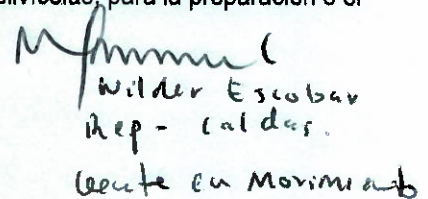 para la preparación o el
Wilder Escobar
Rep - Caldas.
Gente en Movimiento